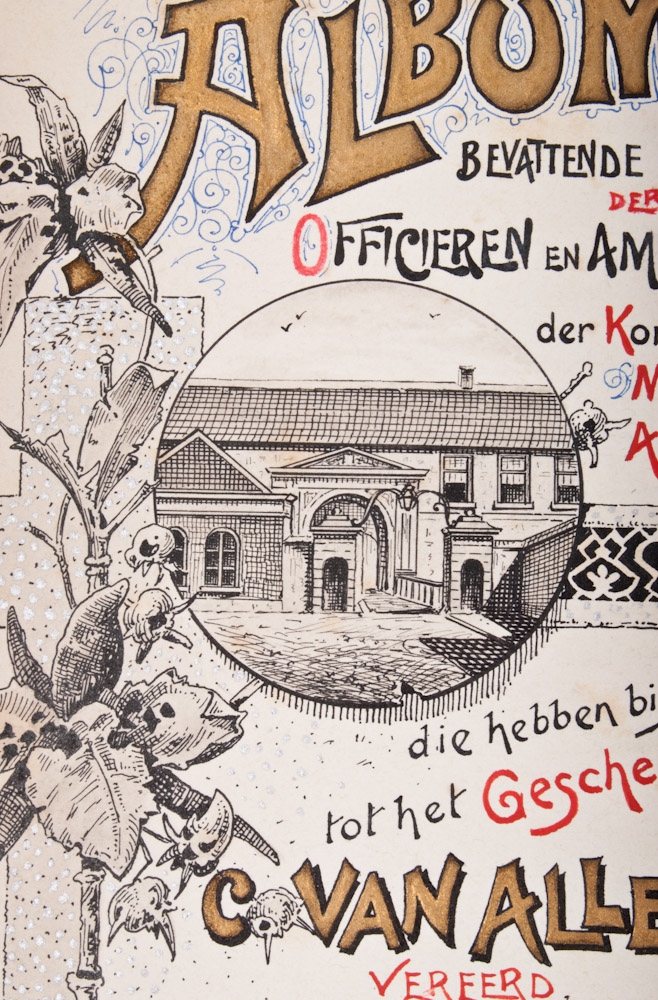 ALBUM
BEVATTENDE
DER
OFFICIEREN EN AM
der Kon
N
A
die hebben bij
tot het Gesche
C. VAN ALLE
VEREERD.